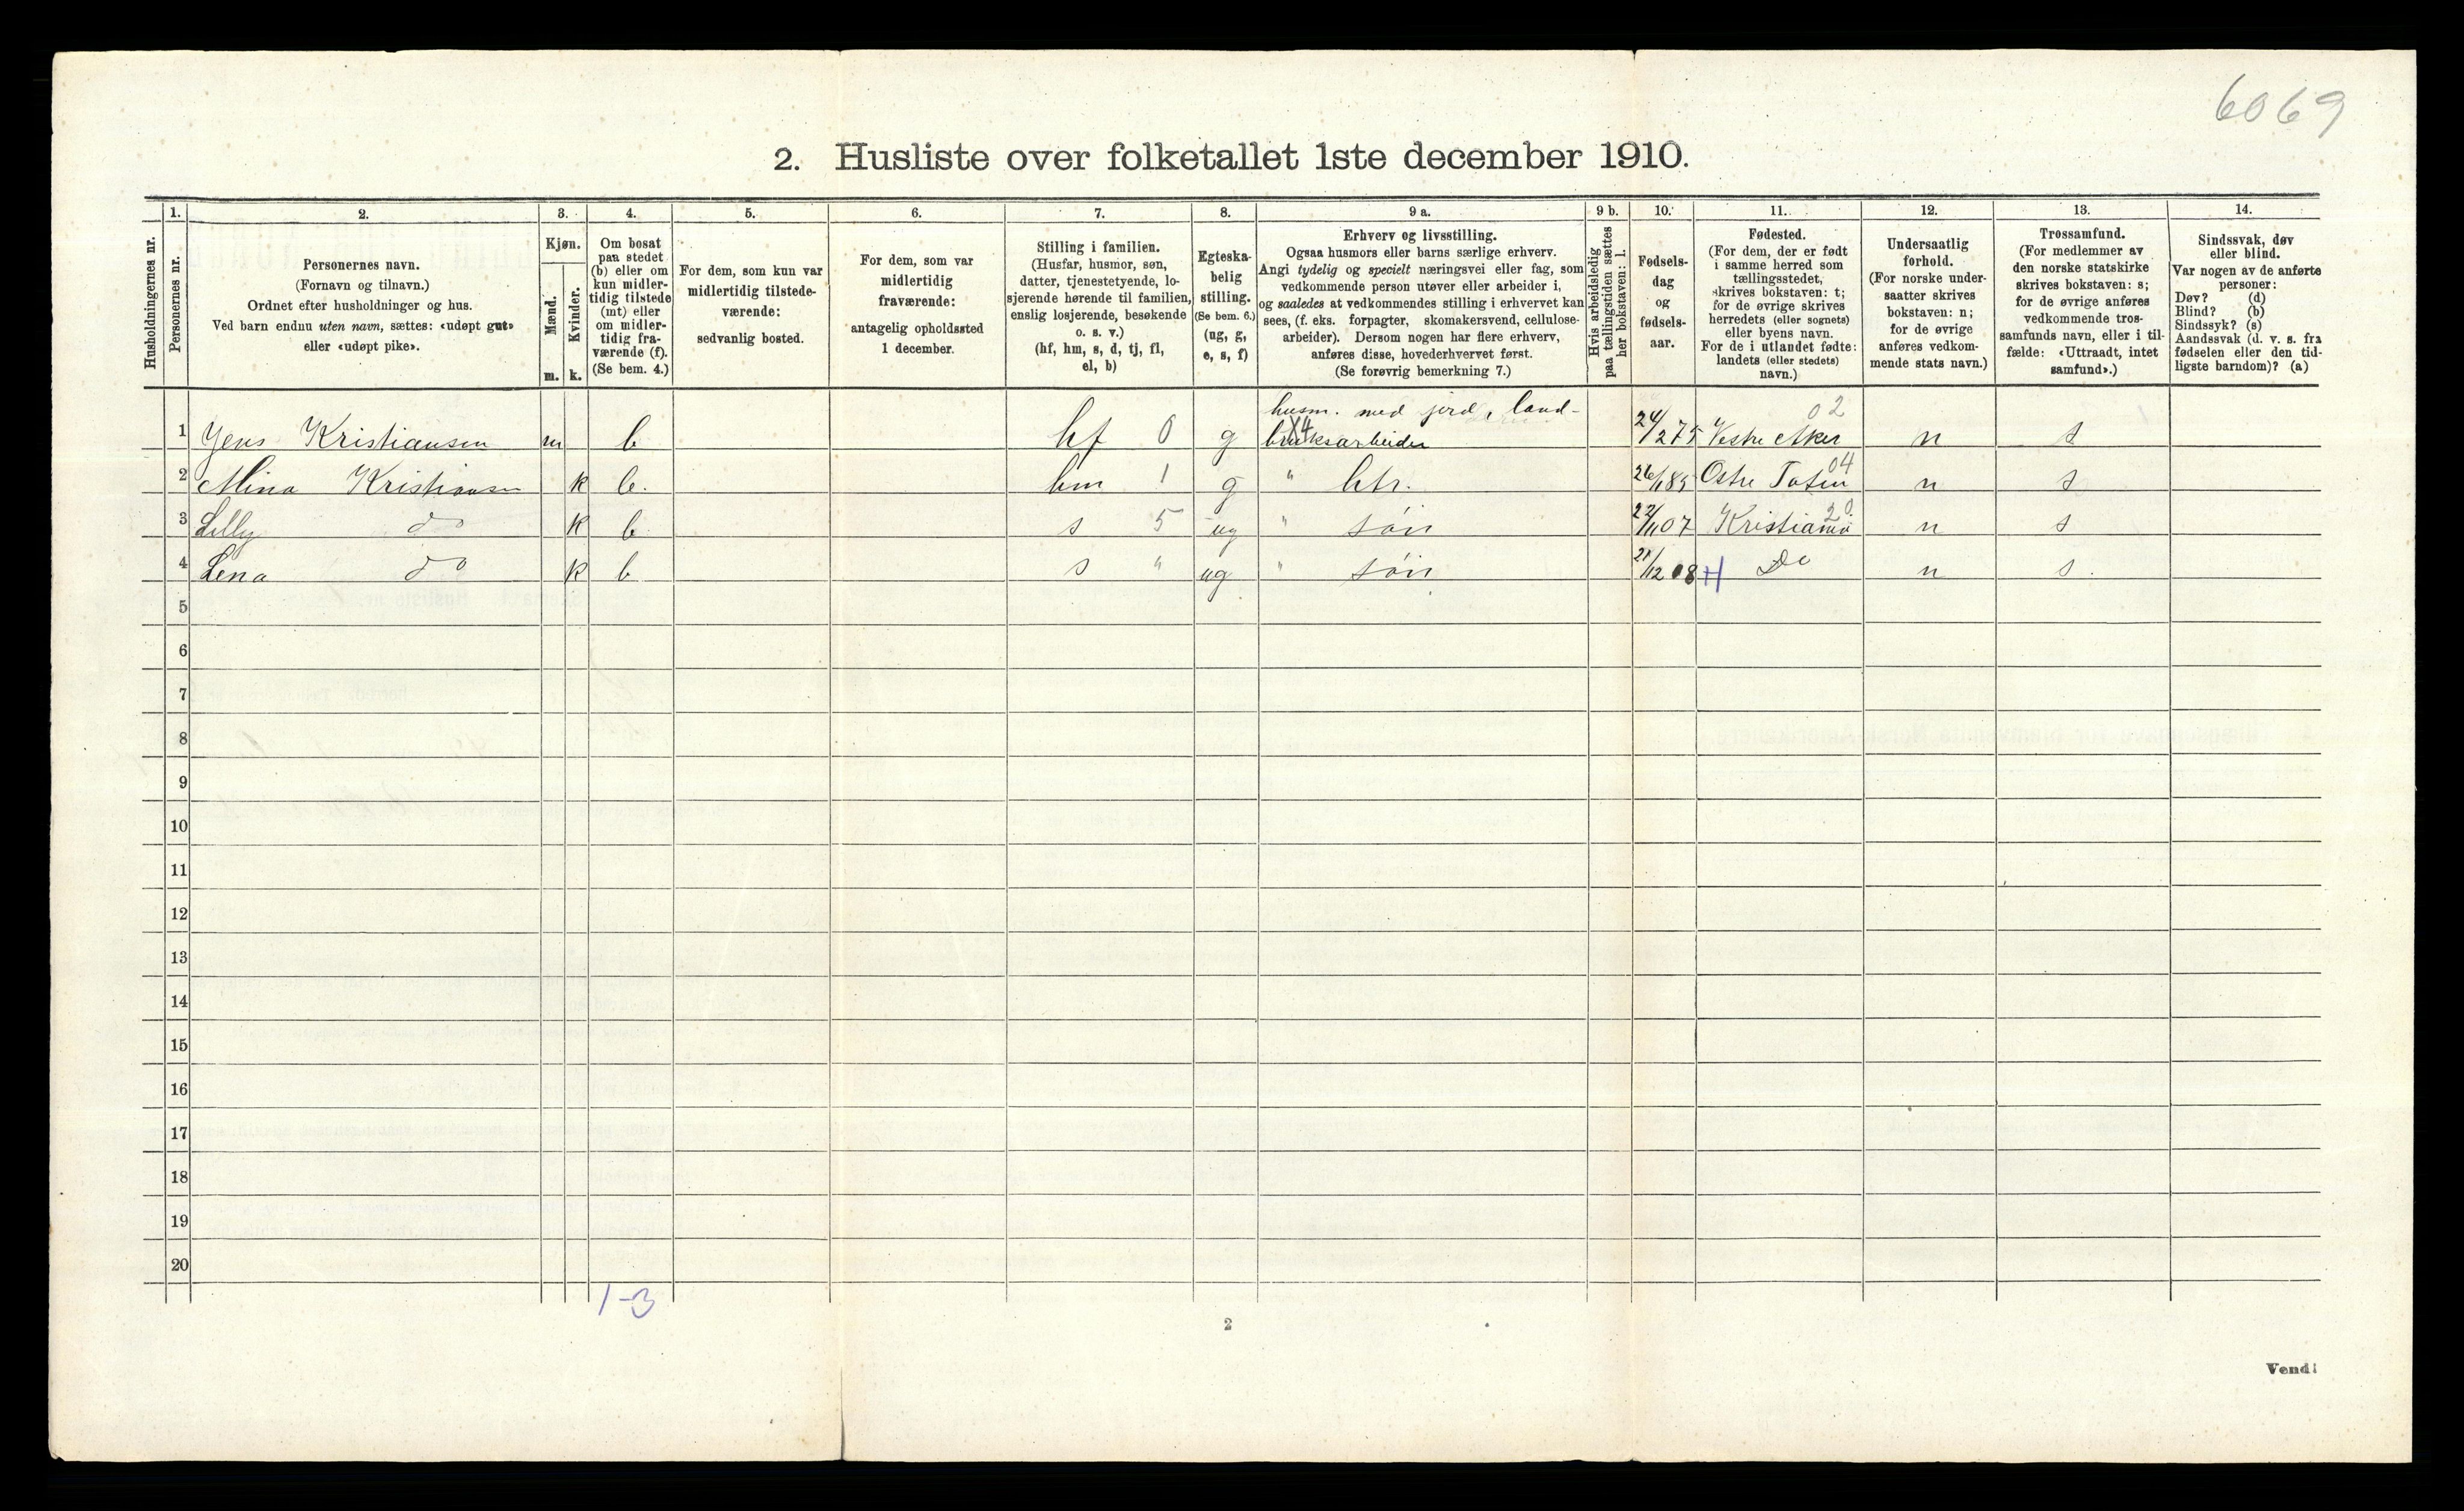 6069
2. Husliste over folketallet 1ste december 1910.
Husholdningernes nr.
1.
Personernes nr.
2.
Personernes navn.
(Fornavn og tilnavn.)
Ordnet efter husholdninger og hus.
Ved barn endnu uten navn, sættes: «udøpt gut»
eller «udøpt pike».
3.
Kjøn.
Mænd.
Kvinder.
m. k.
4.
Om bosat
paa stedet
(b) eller om
kun midler-
tidig tilstede
(mt) eller
om midler-
tidig fra-
værende (f).
(Se bem. 4.)
5.
For dem, som kun var
midlertidig tilstede-
værende:
sedvanlig bosted.
6.
For dem, som var
midlertidig
fraværende:
antagelig opholdssted
1 december.
7.
Stilling i familien.
(Husfar, husmor, søn,
datter, tjenestetyende, lo-
sjerende hørende til familien,
enslig losjerende, besøkende
o. s. v.)
(hf, hm, s, d, tj, fl,
el, b)
8.
Egteska-
belig
stilling.
(Se bem. 6.)
(ug, g,
e, s, f)
9 a.
Erhverv og livsstilling.
Ogsaa husmors eller barns særlige erhverv.
Angi tydelig og specielt næringsvei eller fag, som
vedkommende person utøver eller arbeider i,
og saaledes at vedkommendes stilling i erhvervet kan
sees, (f. eks. forpagter, skomakersvend, cellulose-
arbeider). Dersom nogen har flere erhverv,
anføres disse, hovederhvervet først.
(Se forøvrig bemerkning 7.)
9 b.
Hvis arbeidsledig
paa tællingstiden sættes
her bokstaven: l.
10.
Fødsels-
dag
og
fødsels-
aar.
11.
Fødested.
(For dem, der er født
i samme herred som
tællingsstedet,
skrives bokstaven: t;
for de øvrige skrives
herredets (eller sognets)
eller byens navn.
For de i utlandet fødte:
landets (eller stedets)
navn.)
12.
Undersaatlig
forhold.
(For norske under-
saatter skrives
bokstaven: n;
for de øvrige
anføres vedkom-
mende stats navn.)
13.
Trossamfund.
(For medlemmer av
den norske statskirke
skrives bokstaven: s;
for de øvrige anføres
vedkommende tros-
samfunds navn, eller i til-
fælde: «Uttraadt, intet
samfund».)
14.
Sindssvak, døv
eller blind.
Var nogen av de anførte
personer:
Døv? (d)
Blind? (b)
Sindssyk? (s)
Aandssvak (d. v. s. fra
fødselen eller den tid-
ligste barndom)? (a)
husm. med jord, land- 02
1 Jens Kristiansen m b hf 0 g bruksarbeider X4 24/2 75 Vestre Aker n s
2 Mina Kristiansen k b. hm 1 g " htr. 26/1 85 Østre Toten 04 n s
3 Lilly do k b s 5 ug " søn 22/11 07 Kristiania 20 n s
4 Lena do k b s " ug " søn 21/12 08 H Do n s.
5
6
7
8
9
10
11
12
13
14
15
16
17
18
19
20
1-3
2
Vend!